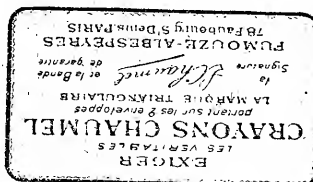 EXIGER
LES VÉRITABLES
CRAYONS CHAUMEL
portant sur les 2 enveloppes
LA MARQUE TRIANGULAIRE
la Signature Chaumel et la Bande de garantie
FUMOUZE-ALBESPEYRES
78 Faubourg St Denis. PARIS